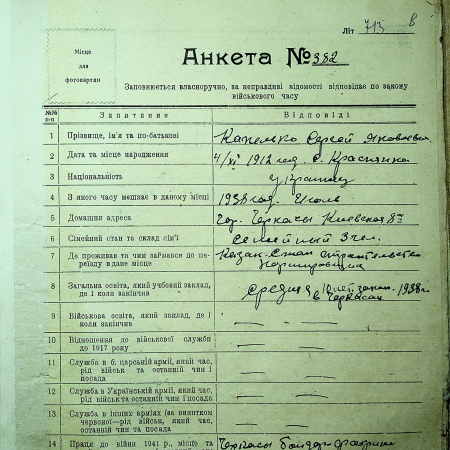 Літ 713 8
Місце
для
фотокартки
Анкета № 382
Заповнюється власноручно, за неправдиві відомості відповідає по закону
військового часу
№№
п-п
Запитання
Відповіді
1 Прізвище, ім'я та по-батькові Сергей Яковлевич
2 Дата та місце народження 4/VI 1912 год с. Краснянка
3 Національність украинец
4 З якого часу мешкає в даному місці 1938 год. Июль
5 Домашня адреса гор. Черкасы Киевская
6 Сімейний стан та склад сім'ї семейный 3 чел.
7 Де проживав та чим займався до пе-
реїзду в дане місце строительство
нормировщик
8 Загальна освіта, який учбовий заклад,
де і коли закінчив средняя 1938г.
в Черкасах
9 Військова освіта, який заклад, де і
коли закінчив — —
10 Відношення до військової служби
до 1917 року — —
11 Служба в б. царській армії, який час,
рід військ та останній чин і
посада — —
12 Служба в Українській армії, який час,
рід військ та останній чин і посада — —
13 Служба в інших арміях (за винятком
червоної—рід військ, який час,
останній чин та посада — —
14 Праця до війни 1941 р., місце та Черкасы фабрики